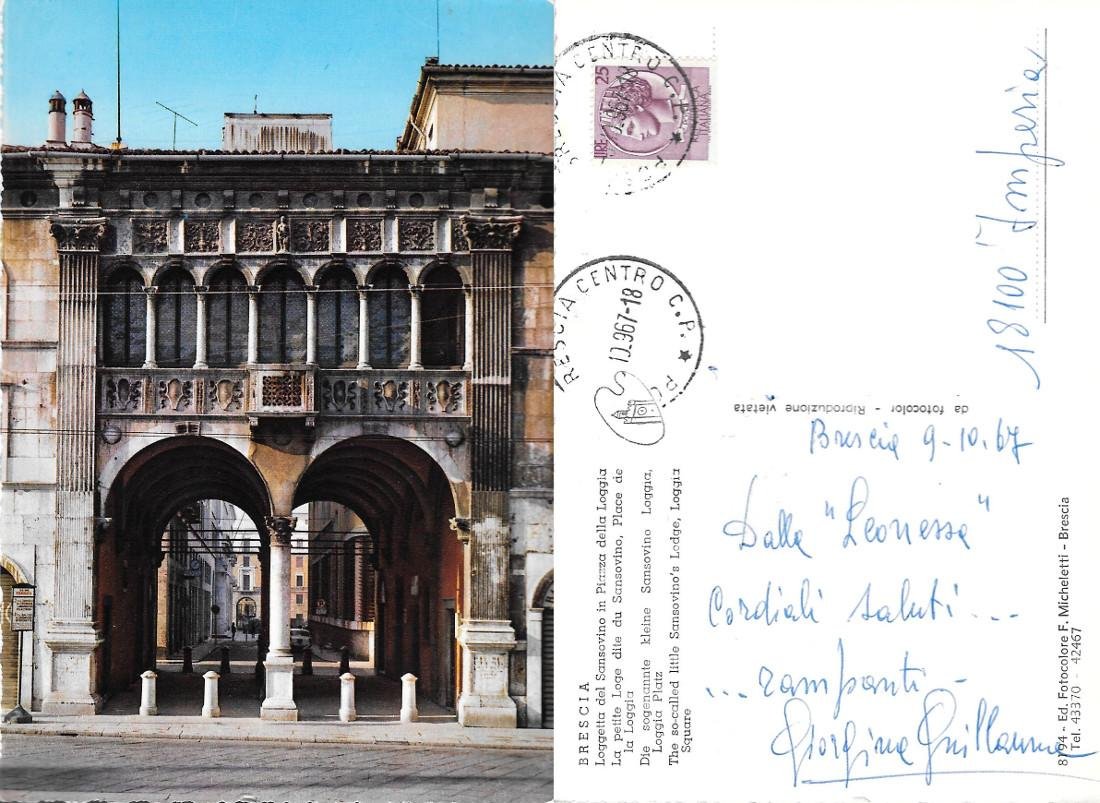 BRESCIA
Loggetta del Sansovino in Piazza della Loggia
La petite Loge dite du Sansovino, Place de
la Loggia
Die sogenannte kleine Sansovino Loggia,
Loggia Platz
The so-called little Sansovino's Lodge, Loggia
Square
RESCIA CENTRO C.P. ★ PO
10.967-18
BRESCIA CENTRO C.P. ★ PO
LIRE 25
ITALIANA
18100 Imperia
da fotocolor - Riproduzione vietata
Brescia 9-10.67
Dalla "Leonessa"
Cordiali saluti...
... rampanti -
Giorgina Guillauma
8194 - Ed. Fotocolore F. Micheletti - Brescia
Tel. 43370 - 42467